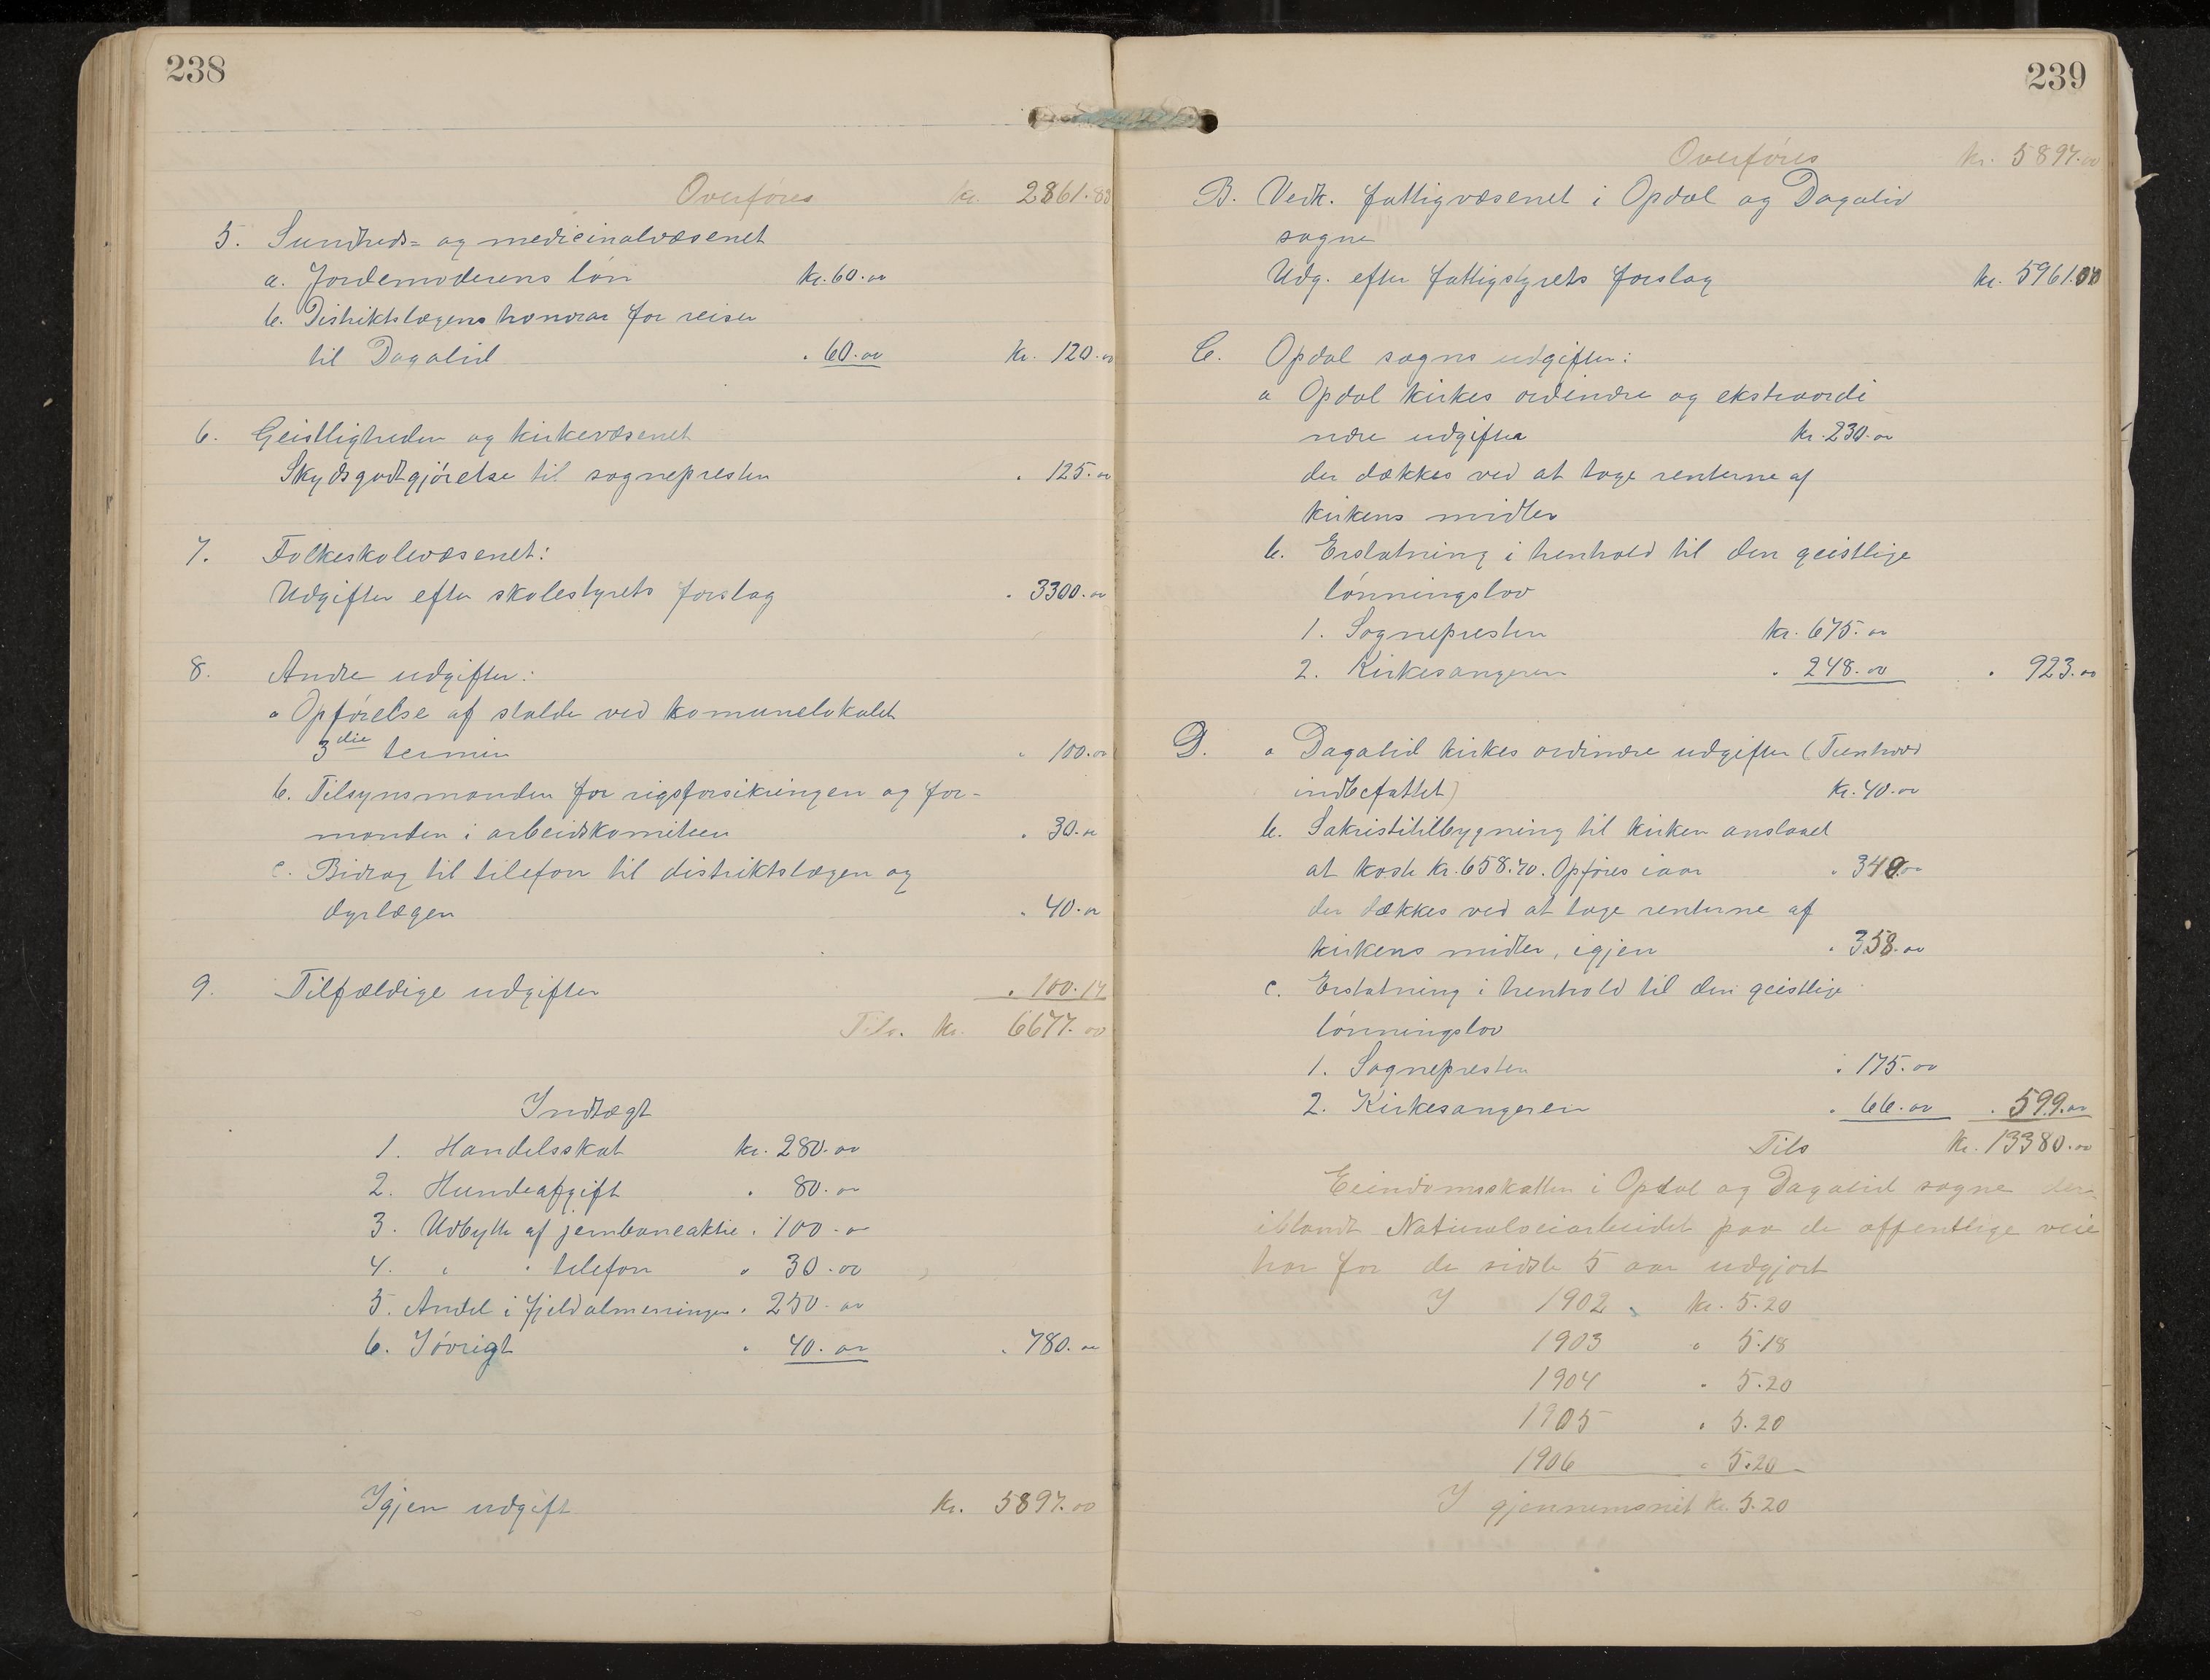 238
Overføres kr. 2861.83
5. Sundheds- og medicinalvæsenet
a. Jordemoderens løn kr. 60.00
b. Distriktslægens honorar for reiser
til Dagalid " 60.00 kr. 120.00
6. Geistligheden og kirkevæsenet
Skydsgodtgjørelse til sognepresten " 125.00
7. Folkeskolevæsenet:
Udgifter efter skolestyrets forslag " 3300.00
8. Andre udgifter:
a Opførelse af stalde ved komunelokalet
3die termin " 100.00
b. Tilsynsmanden for rigsforsikringen og for-
manden i arbeidskomiteen " 30.00
c. Bidrag til telefon til distriktslægen og
dyrlægen " 40.00
9. Tilfældige udgifter " 100.17
Tils. kr. 6677.00
Indtægt
1. Handelsskat kr. 280.00
2. Hundeafgift " 80.00
3. Udbytte af jernbaneaktie " 100.00
4. " " telefon " 30.00
5. Andel i fjeldalmenningen " 250.00
6. Iøvrigt " 40.00 " 780.00
Igjen udgift kr. 5897.00
239
Overføres kr. 5897.00
B. Vedk. fattigvæsenet i Opdal og Dagalid
sogne
Udg. efter fattigstyrets forslag kr. 5961.00
C. Opdal sogns udgifter:
a Opdal kirkes ordinære og ekstraordi
nære udgifter kr. 230.00
der dækkes ved at tage renterne af
kirkens midler
b. Erstatning i henhold til den geistlige
lønningslov
1. Sognepresten kr. 675.00
2. Kirkesangeren " 248.00 " 923.00
D. a Dagalid kirkes ordinære udgifter (Tunhovd
indbefattet) kr. 40.00
b. Sakristitilbygning til kirken anslaaet
at koste kr. 658.70. Opføres iaar " 340.00
der dækkes ved at tage renterne af
kirkens midler, igjen " 358.00
c. Erstatning i henhold til den geistlige
lønningslov
1. Sognepresten " 175.00
2. Kirkesangeren " 66.00 " 599.00
Tils kr. 13380.00
Eiendomsskatten i Opdal og Dagalid sogne der-
iblandt Naturalveiarbeidet paa de offentlige veie
har for de sidste 5 aar udgjort
I 1902 kr. 5.20
1903 " 5.18
1904 " 5.20
1905 " 5.20
1906 " 5.20
I gjennemsnit kr. 5.20